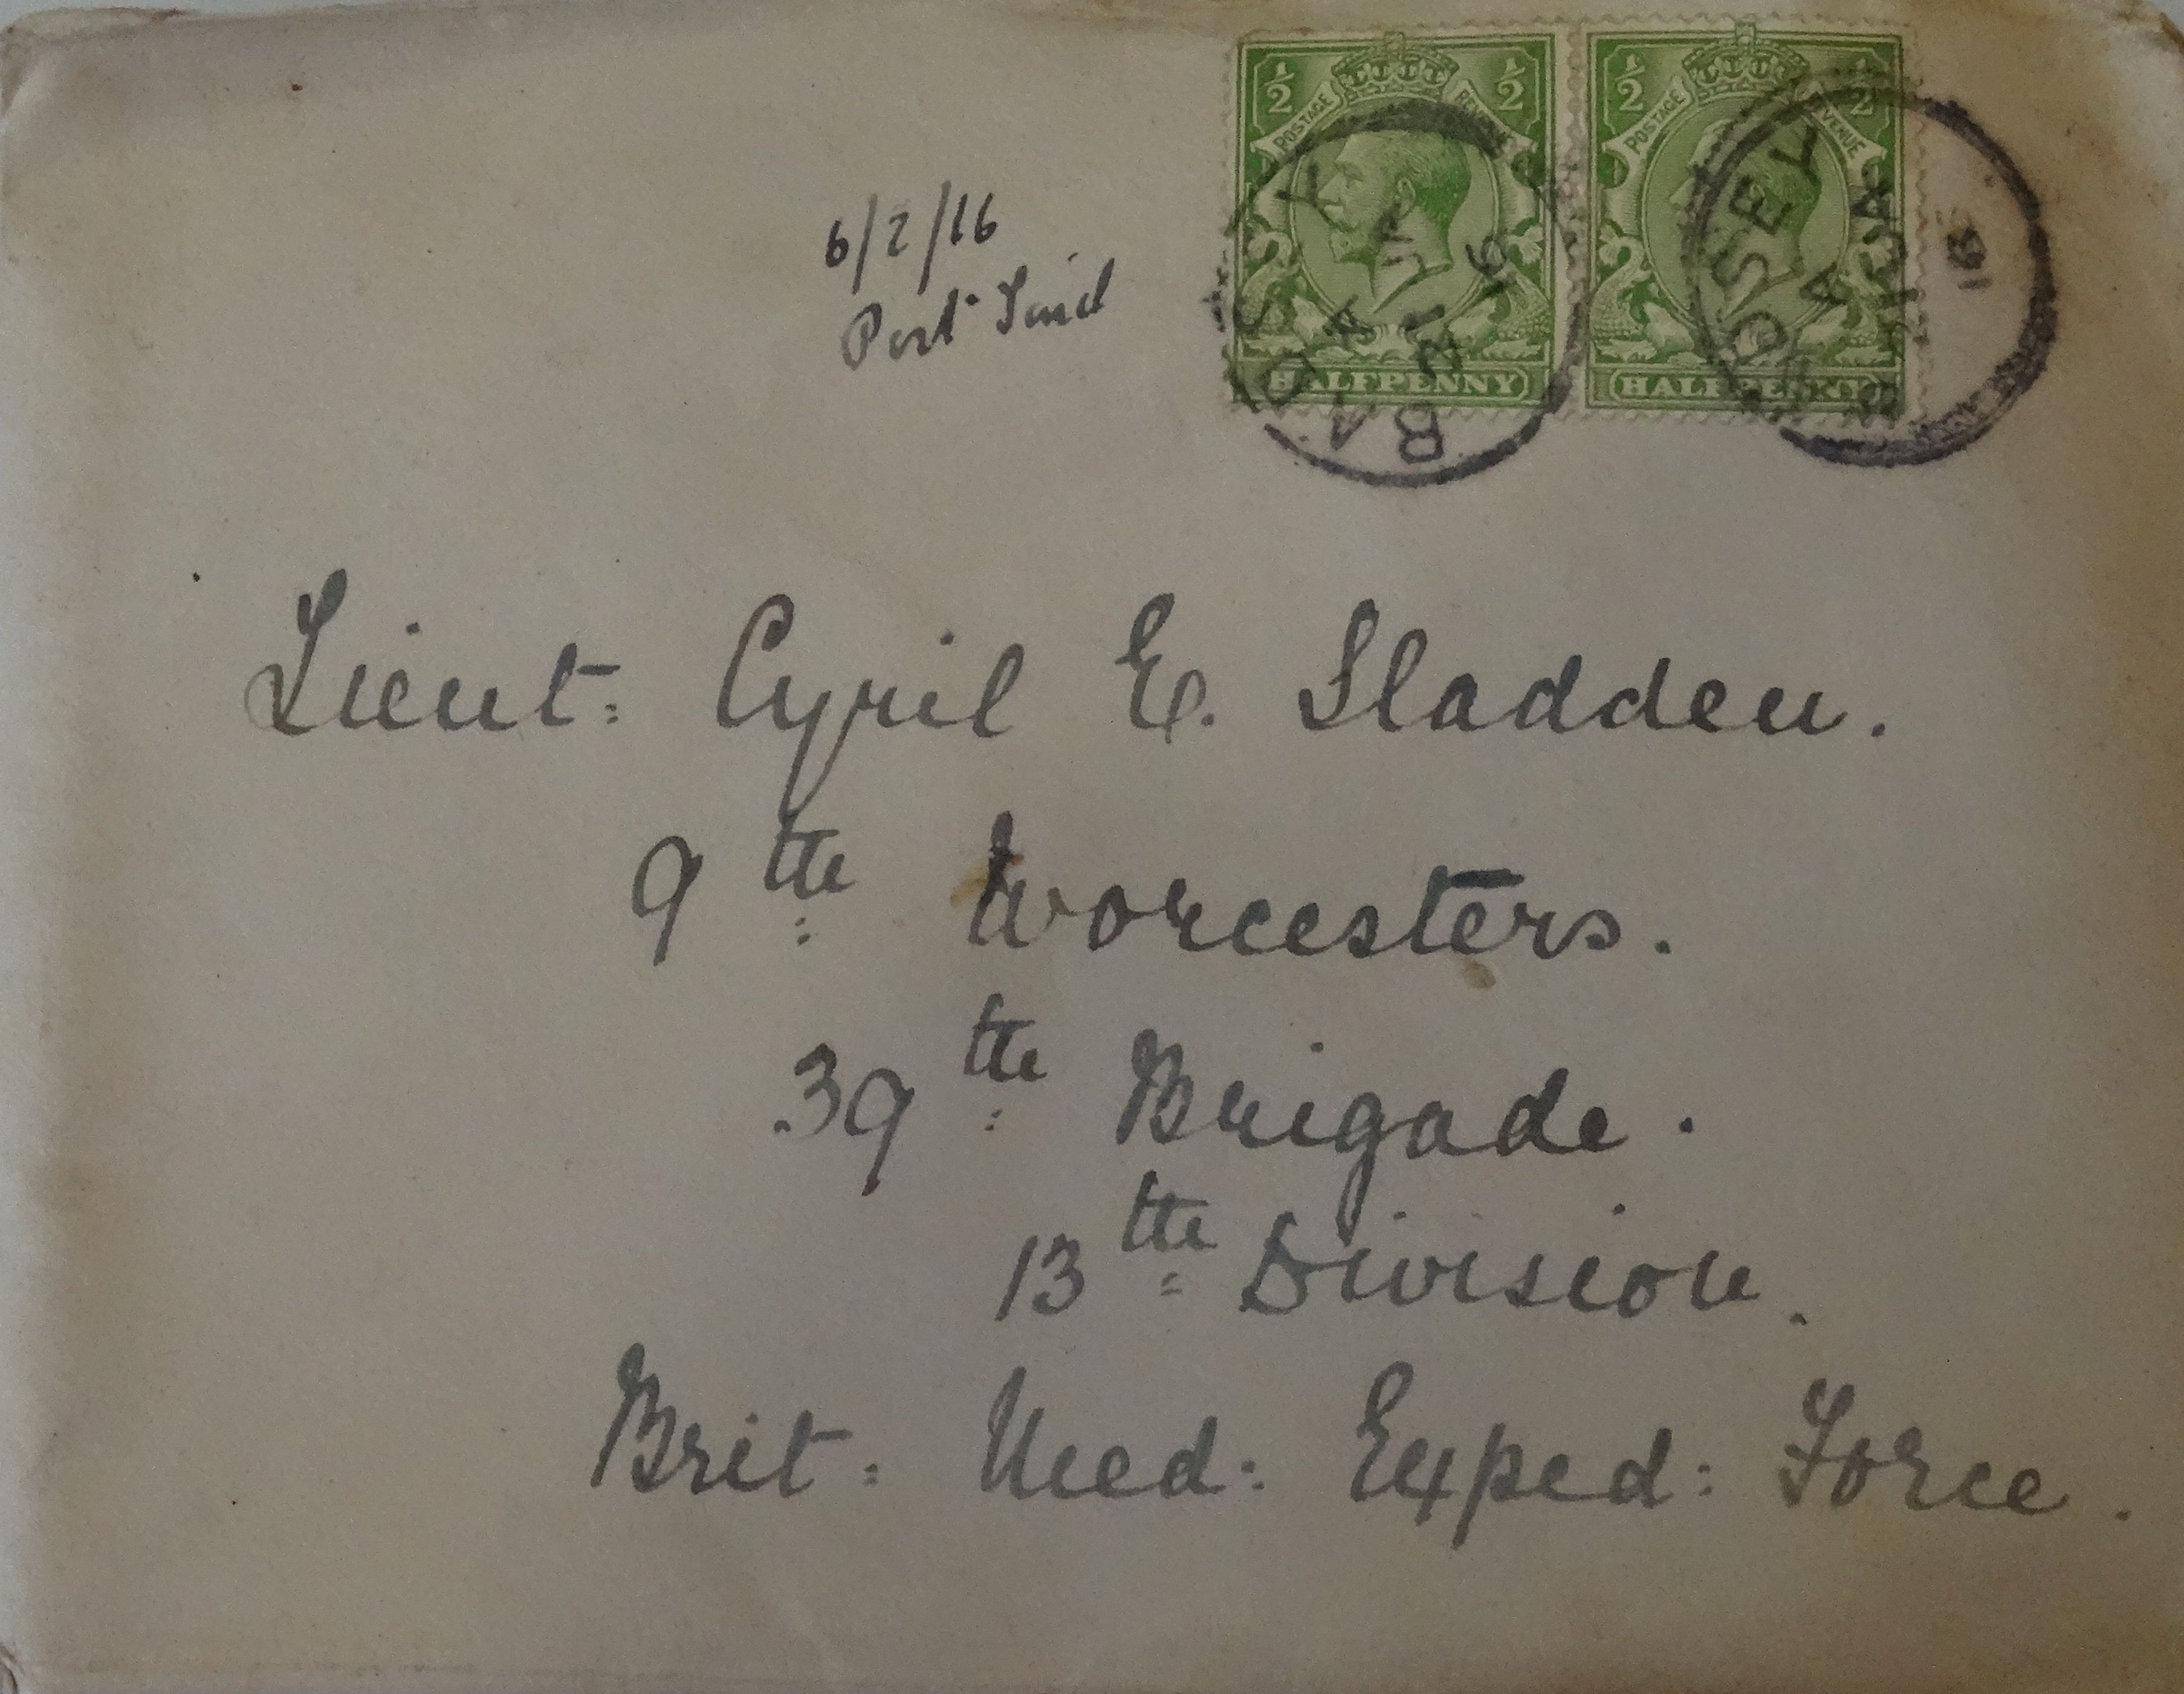 ½ POSTAGE REVENUE ½
HALFPENNY
½ POSTAGE REVENUE ½
HALFPENNY
BADSEY
A
21 JA
16
BADSEY
A
21 JA
16
6/2/16
Port Said
Lieut: Cyril E. Sladden.
9th Worcesters.
39th Brigade.
13th Division.
Brit: Med: Exped: Force.